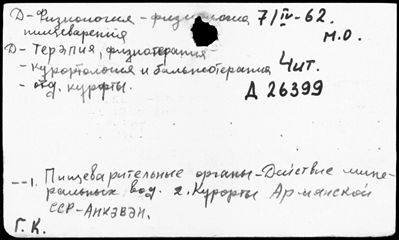 Д-Физиология-физиология 7/IV-62.
пищеварения
М.О.
Д-Терапия, физиотерапия-
-курортология и бальнеотерапия Чит.
-отд. курорты.
Д 26399
--1. Пищеварительные органы-Действие мине-
ральных вод. 2. Курорты Армянской
ССР-Анкэвэн.
Г.К.